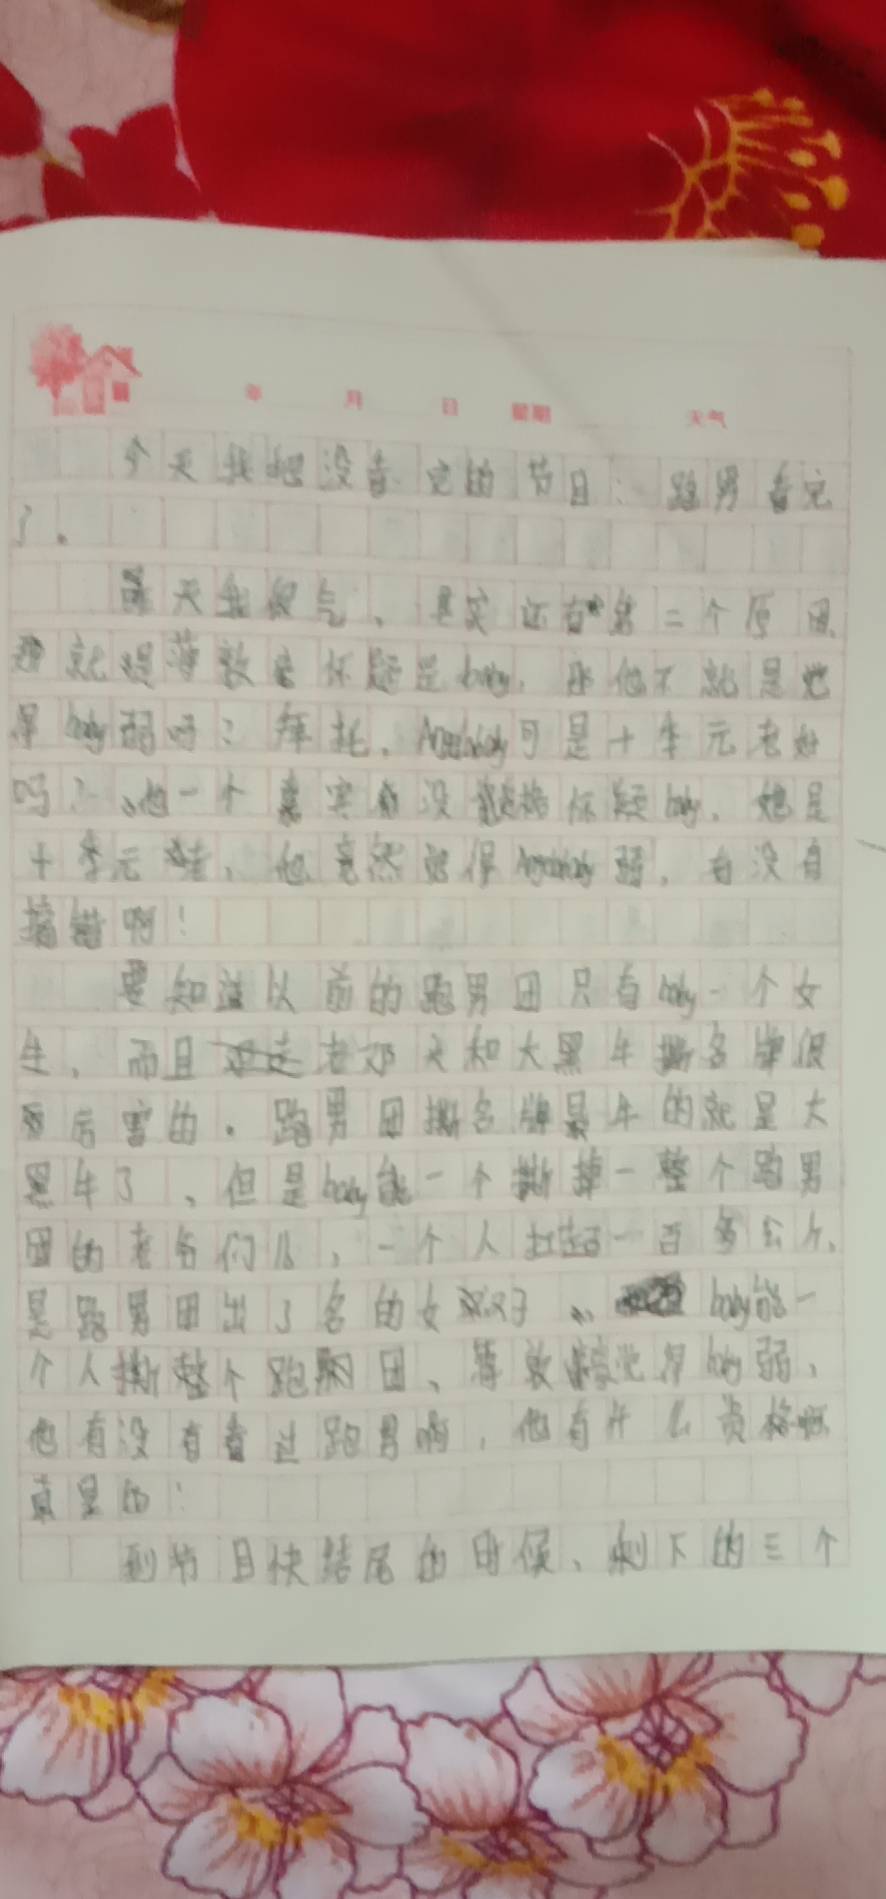 年 月 日 星期 天气
今天我把没看完的节目：跑男看完
了。
昨天我很气，其实还有第二个原因
那就是薛敖怀疑是baby，那他不就是觉
得baby弱吗？拜托，Angelababy可是十季元老好
吗？他一个嘉宾有没资格怀疑baby，她是
十季元老，他竟然觉得Angelababy弱，有没有
搞错啊！
要知道以前的跑男团只有baby一个女
生，而且老邓天和大黑牛撕名牌很
厉害的。跑男团撕名牌最牛的就是大
黑牛了，但是baby能一个撕掉一整个跑男
团的老爷们儿，一个人扛起一百多公斤，
是跑男团出了名的女汉子。baby能一
个人撕整个跑男团，觉得baby弱，
他有没有看过跑男啊，他有什么资格啊
真是的！
到节目快结尾的时候，剩下的三个